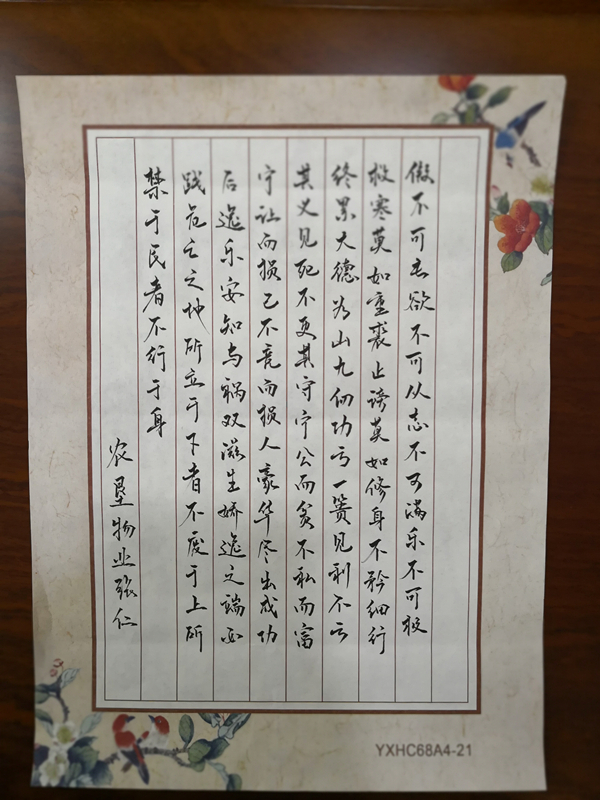 傲不可长欲不可从志不可满乐不可极
救寒莫如重裘止谤莫如修身不矜细行
终累大德为山九仞功亏一篑见利不亏
其义见死不更其守宁公而贫不私而富
宁让而损己不竞而损人豪华尽出成功
后逸乐安知与祸双滋生娇逸之端必
践危亡之地所立于下者不废于上所
禁于民者不行于身
农垦物业张仁
YXHC68A4-21